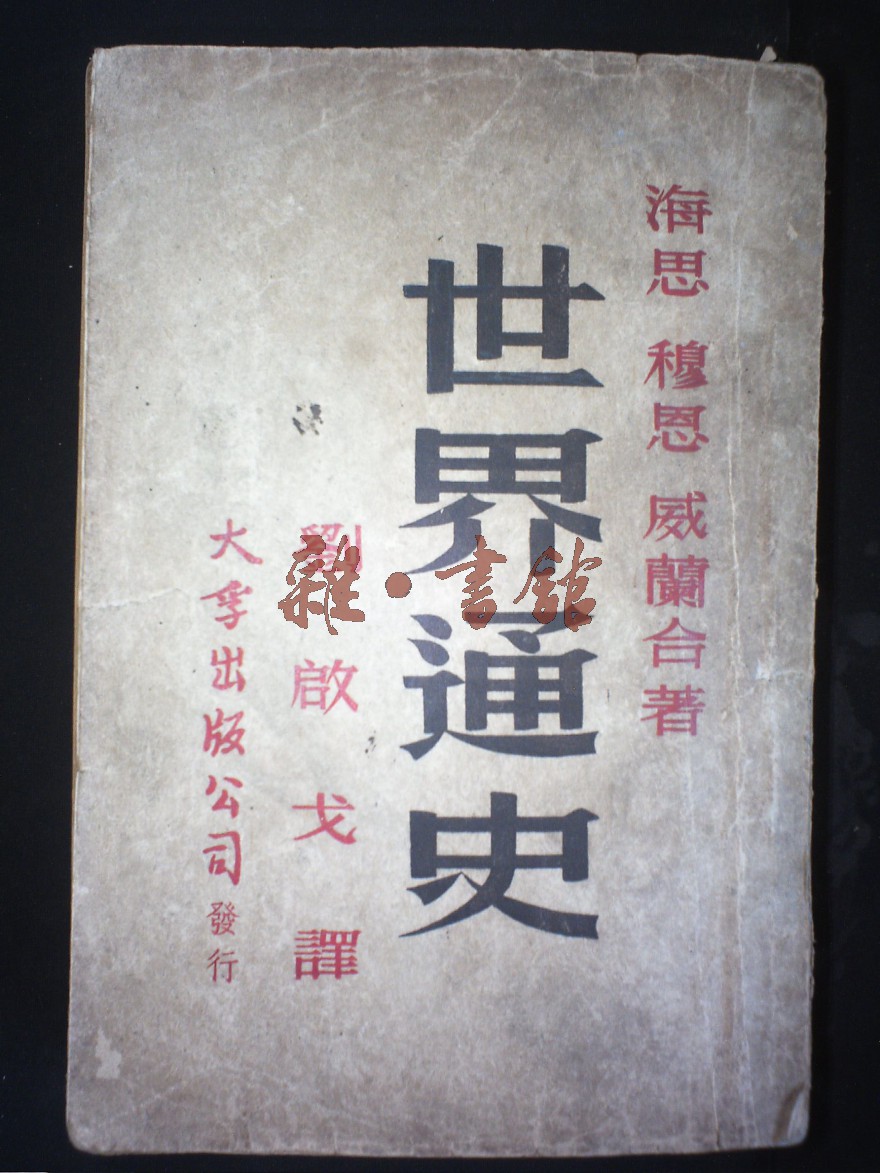 海思 穆恩 威蘭合著
世界通史
劉啟戈譯
大孚出版公司發行
雜·書館